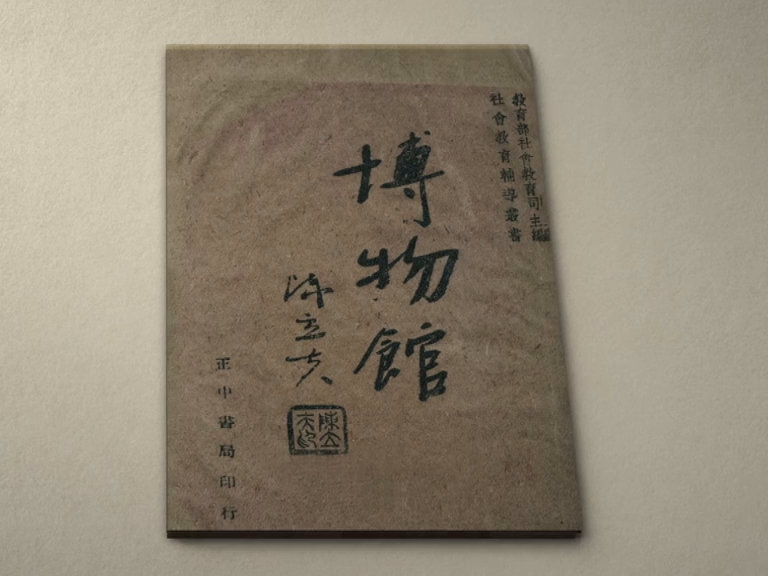 教育部社會教育司主編
社會教育輔導叢書
博物館
陳立夫
陳立夫印
正中書局印行